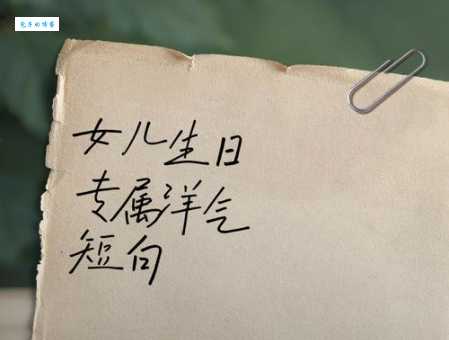 女儿生日
专属洋气
短句